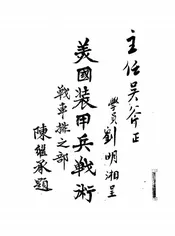 主任吴斧正
學員劉明湘呈
美國装甲兵戦術
戦車攠之部
陳繼承題